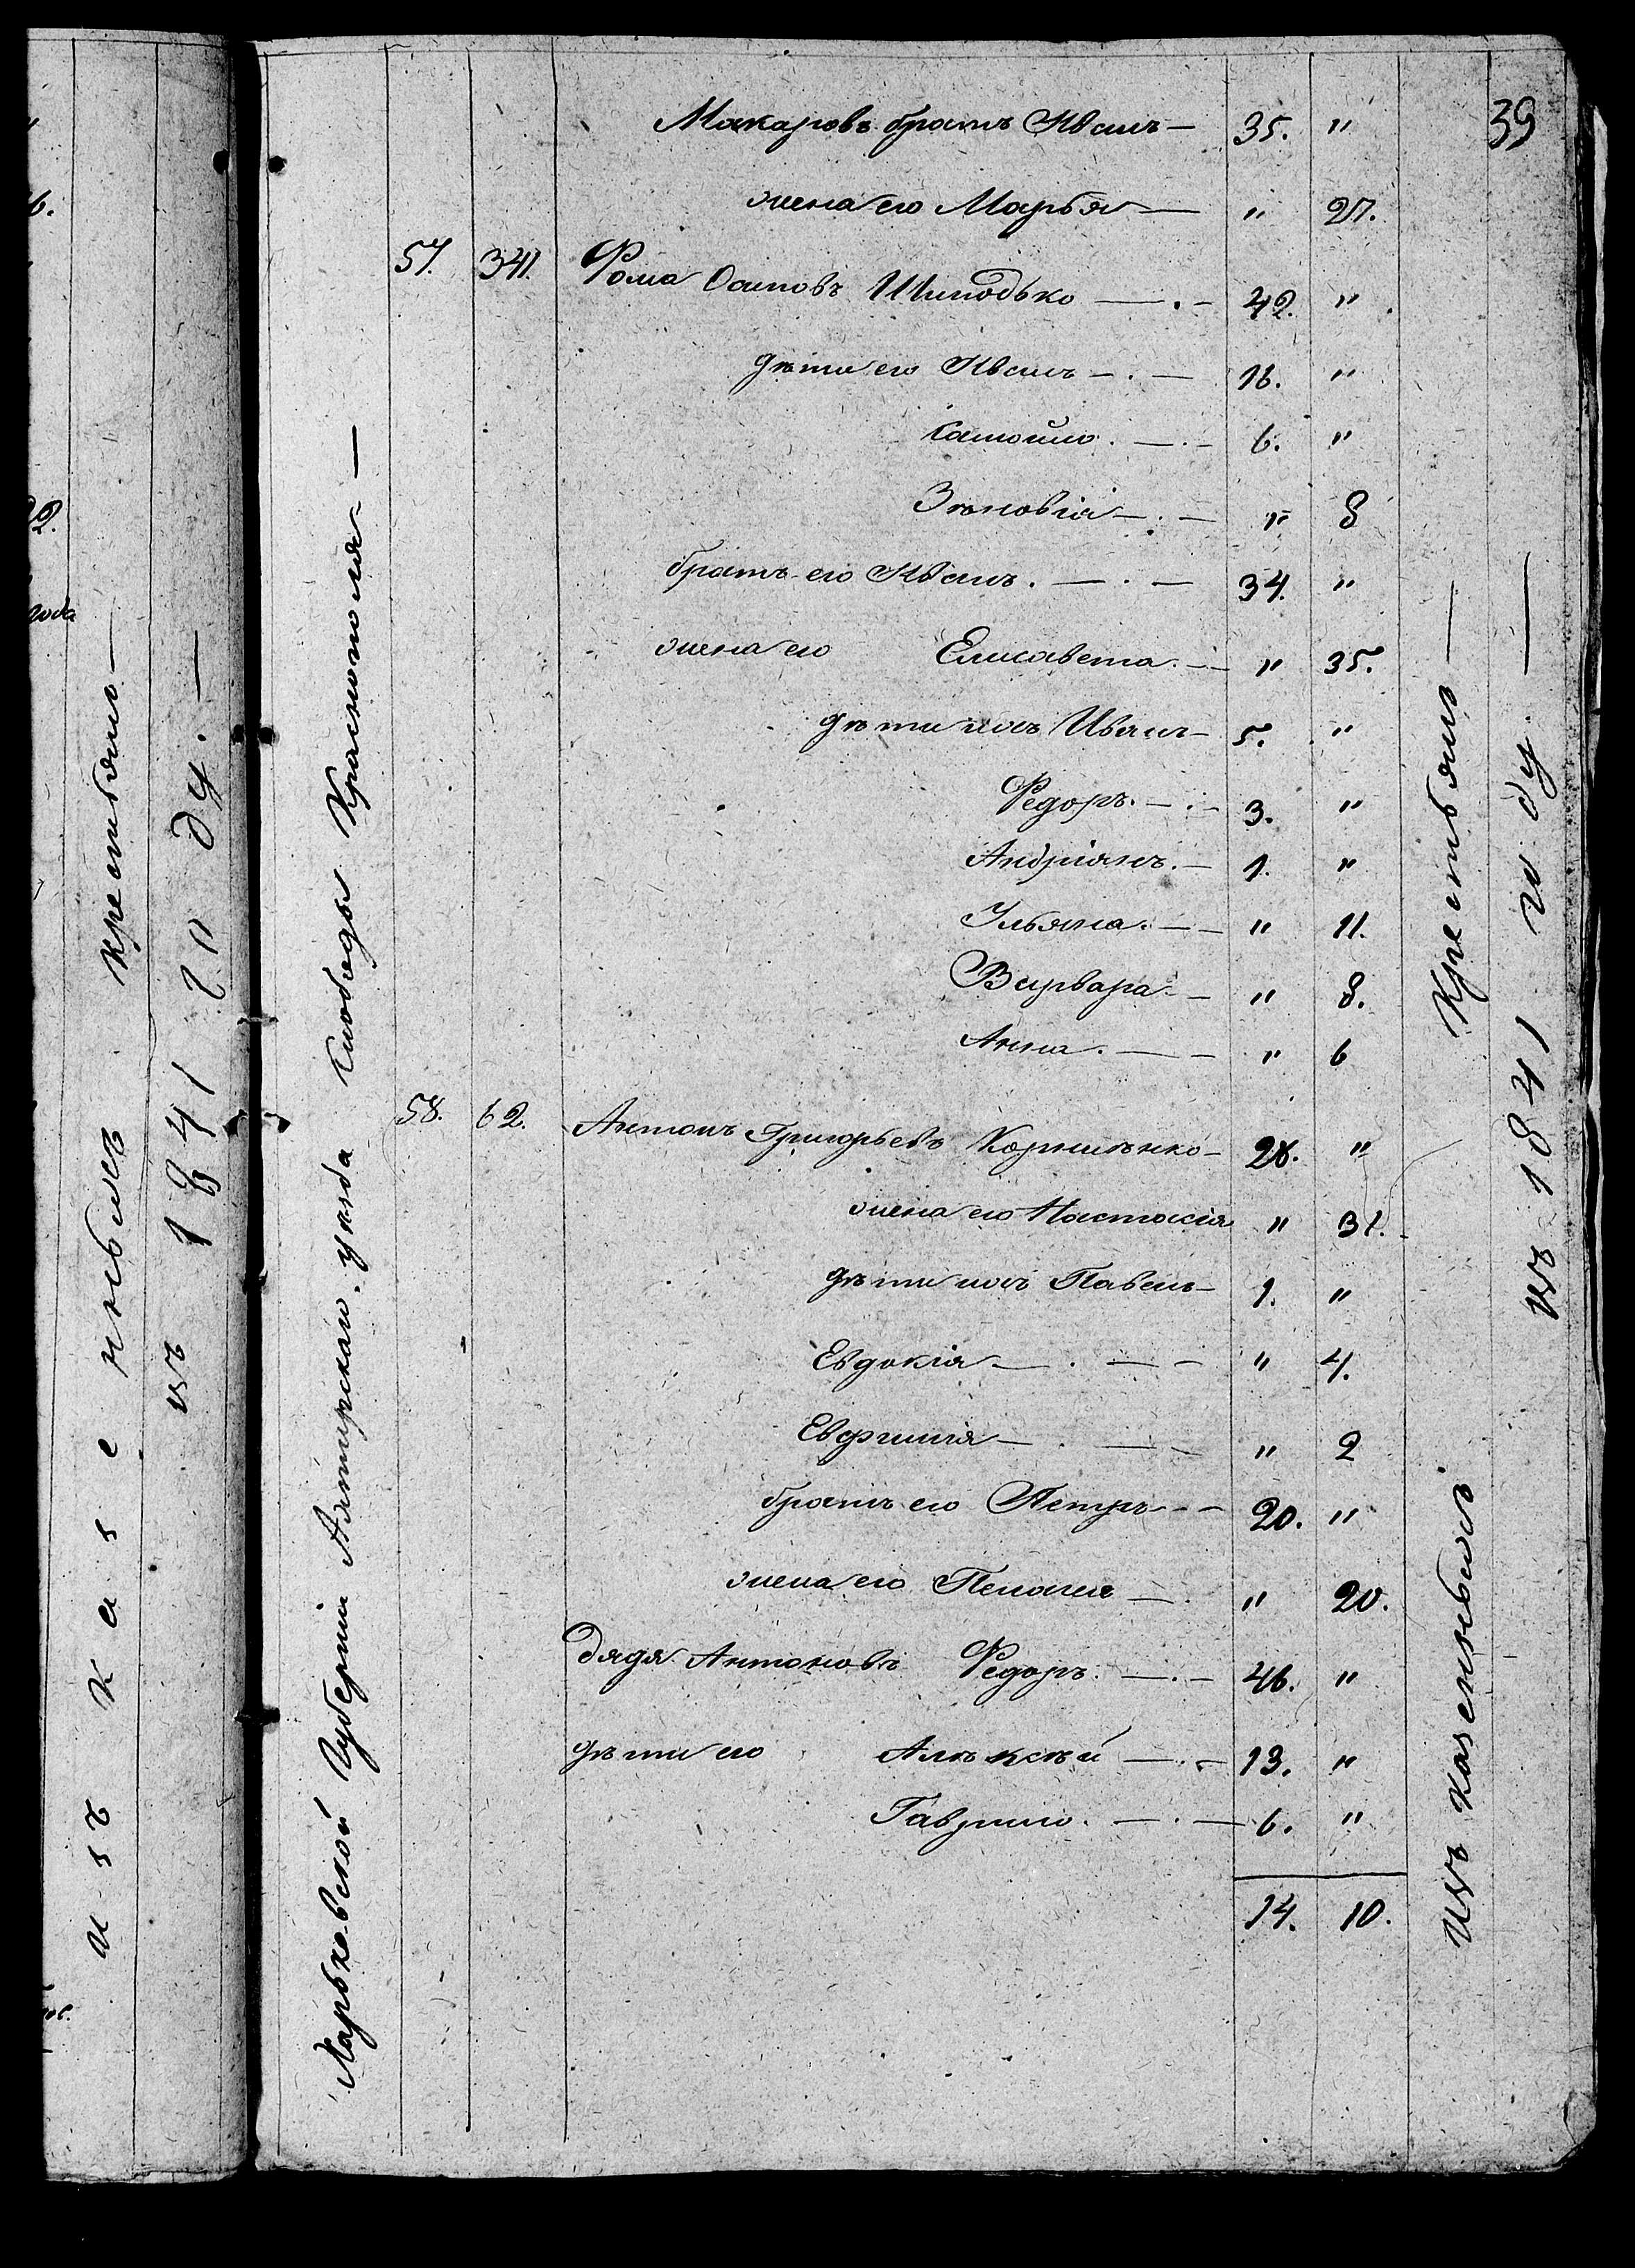 39
Макаровъ братъ Иванъ — 35. "
жена его Марья — " 27.
57. 341. Фома Осиповъ — . — 42. "
дѣти его Иванъ — . — 16. "
Самойло . — . — 6. "
Зѣновія — . — " 8
братъ его Иванъ . — . — 34. "
жена его Елисавета . — " 35.
дѣти ихъ Иванъ — 5. "
Федоръ . — . — 3. "
Андріянъ . — 1. "
Ульяна . — — " 11.
Варвара — — " 8.
Анна . — — " 6
58. 62. Антонъ Григорьевъ Корниѣнко — 28. "
жена его Настасія " 31.
дѣти ихъ Павелъ — 1. "
Евдокія — . — — " 4.
Евфимія — . — — " 2
братъ его Петръ — — 20. "
жена его Пелагея — . " 20.
дядя Антоновъ Федоръ . — . — 46. "
дѣти его Алѣксѣй — . — 13. "
Гаврило . — . — 6. "
14. 10.
Харьковской Губерніи Ахтирскаго уѣзда слободы Краснополя —
Изъ казенныхъ Крестьянъ —
въ 1841 году —
изъ казенныхъ крестьянъ —
въ 1841 году . —
года